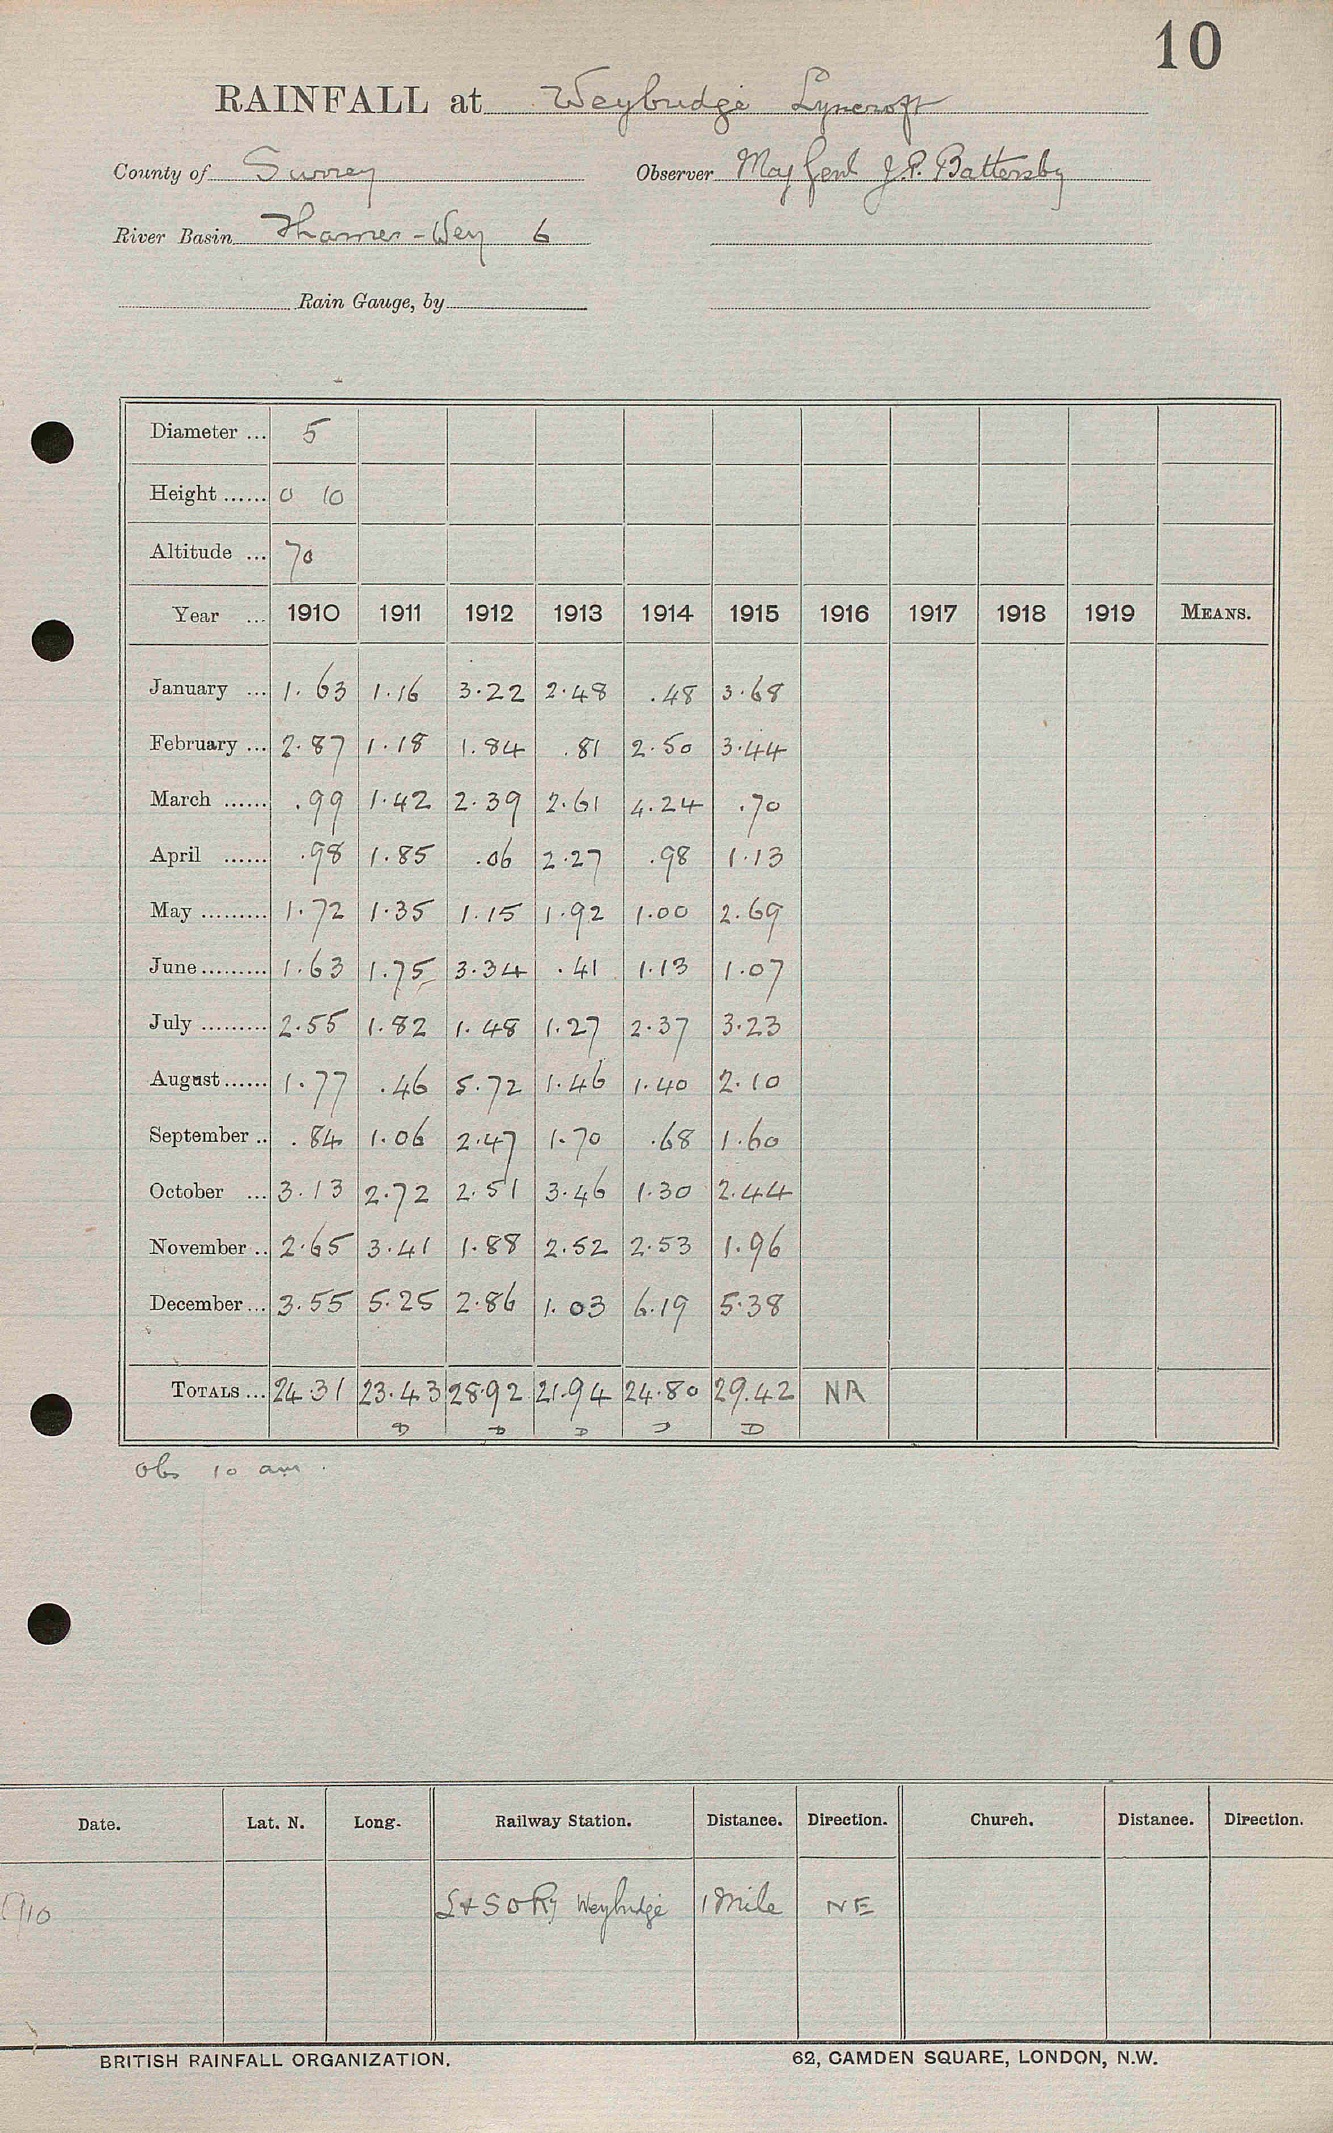 10
RAINFALL at Weybridge Lyncroft
County of Surrey Observer Maj Genl J.P. Battersby
River Basin Thames-Wey 6
Rain Gauge, by
Diameter ... 5
Height ...... 0 10
Altitude ... 70
Year ... 1910 1911 1912 1913 1914 1915 1916 1917 1918 1919 MEANS.
January ... 1.63 1.16 3.22 2.48 .48 3.68
February ... 2.87 1.18 1.84 .81 2.50 3.44
March ...... .99 1.42 2.39 2.61 4.24 .70
April ...... .98 1.85 .06 2.27 .98 1.13
May ......... 1.72 1.35 1.15 1.92 1.00 2.69
June ......... 1.63 1.75 3.34 .41 1.13 1.07
July ......... 2.55 1.82 1.48 1.27 2.37 3.23
August ...... 1.77 .46 5.72 1.46 1.40 2.10
September .. .84 1.06 2.47 1.70 .68 1.60
October ... 3.13 2.72 2.51 3.46 1.30 2.44
November .. 2.65 3.41 1.88 2.52 2.53 1.96
December ... 3.55 5.25 2.86 1.03 6.19 5.38
TOTALS ... 24.31 23.43 28.92 21.94 24.80 29.42 NR
D D D D D
Obs 10 am.
Date. Lat. N. Long. Railway Station. Distance. Direction. Church. Distance. Direction.
1910 L+SWRy Weybridge 1 Mile NE
BRITISH RAINFALL ORGANIZATION. 62, CAMDEN SQUARE, LONDON, N.W.